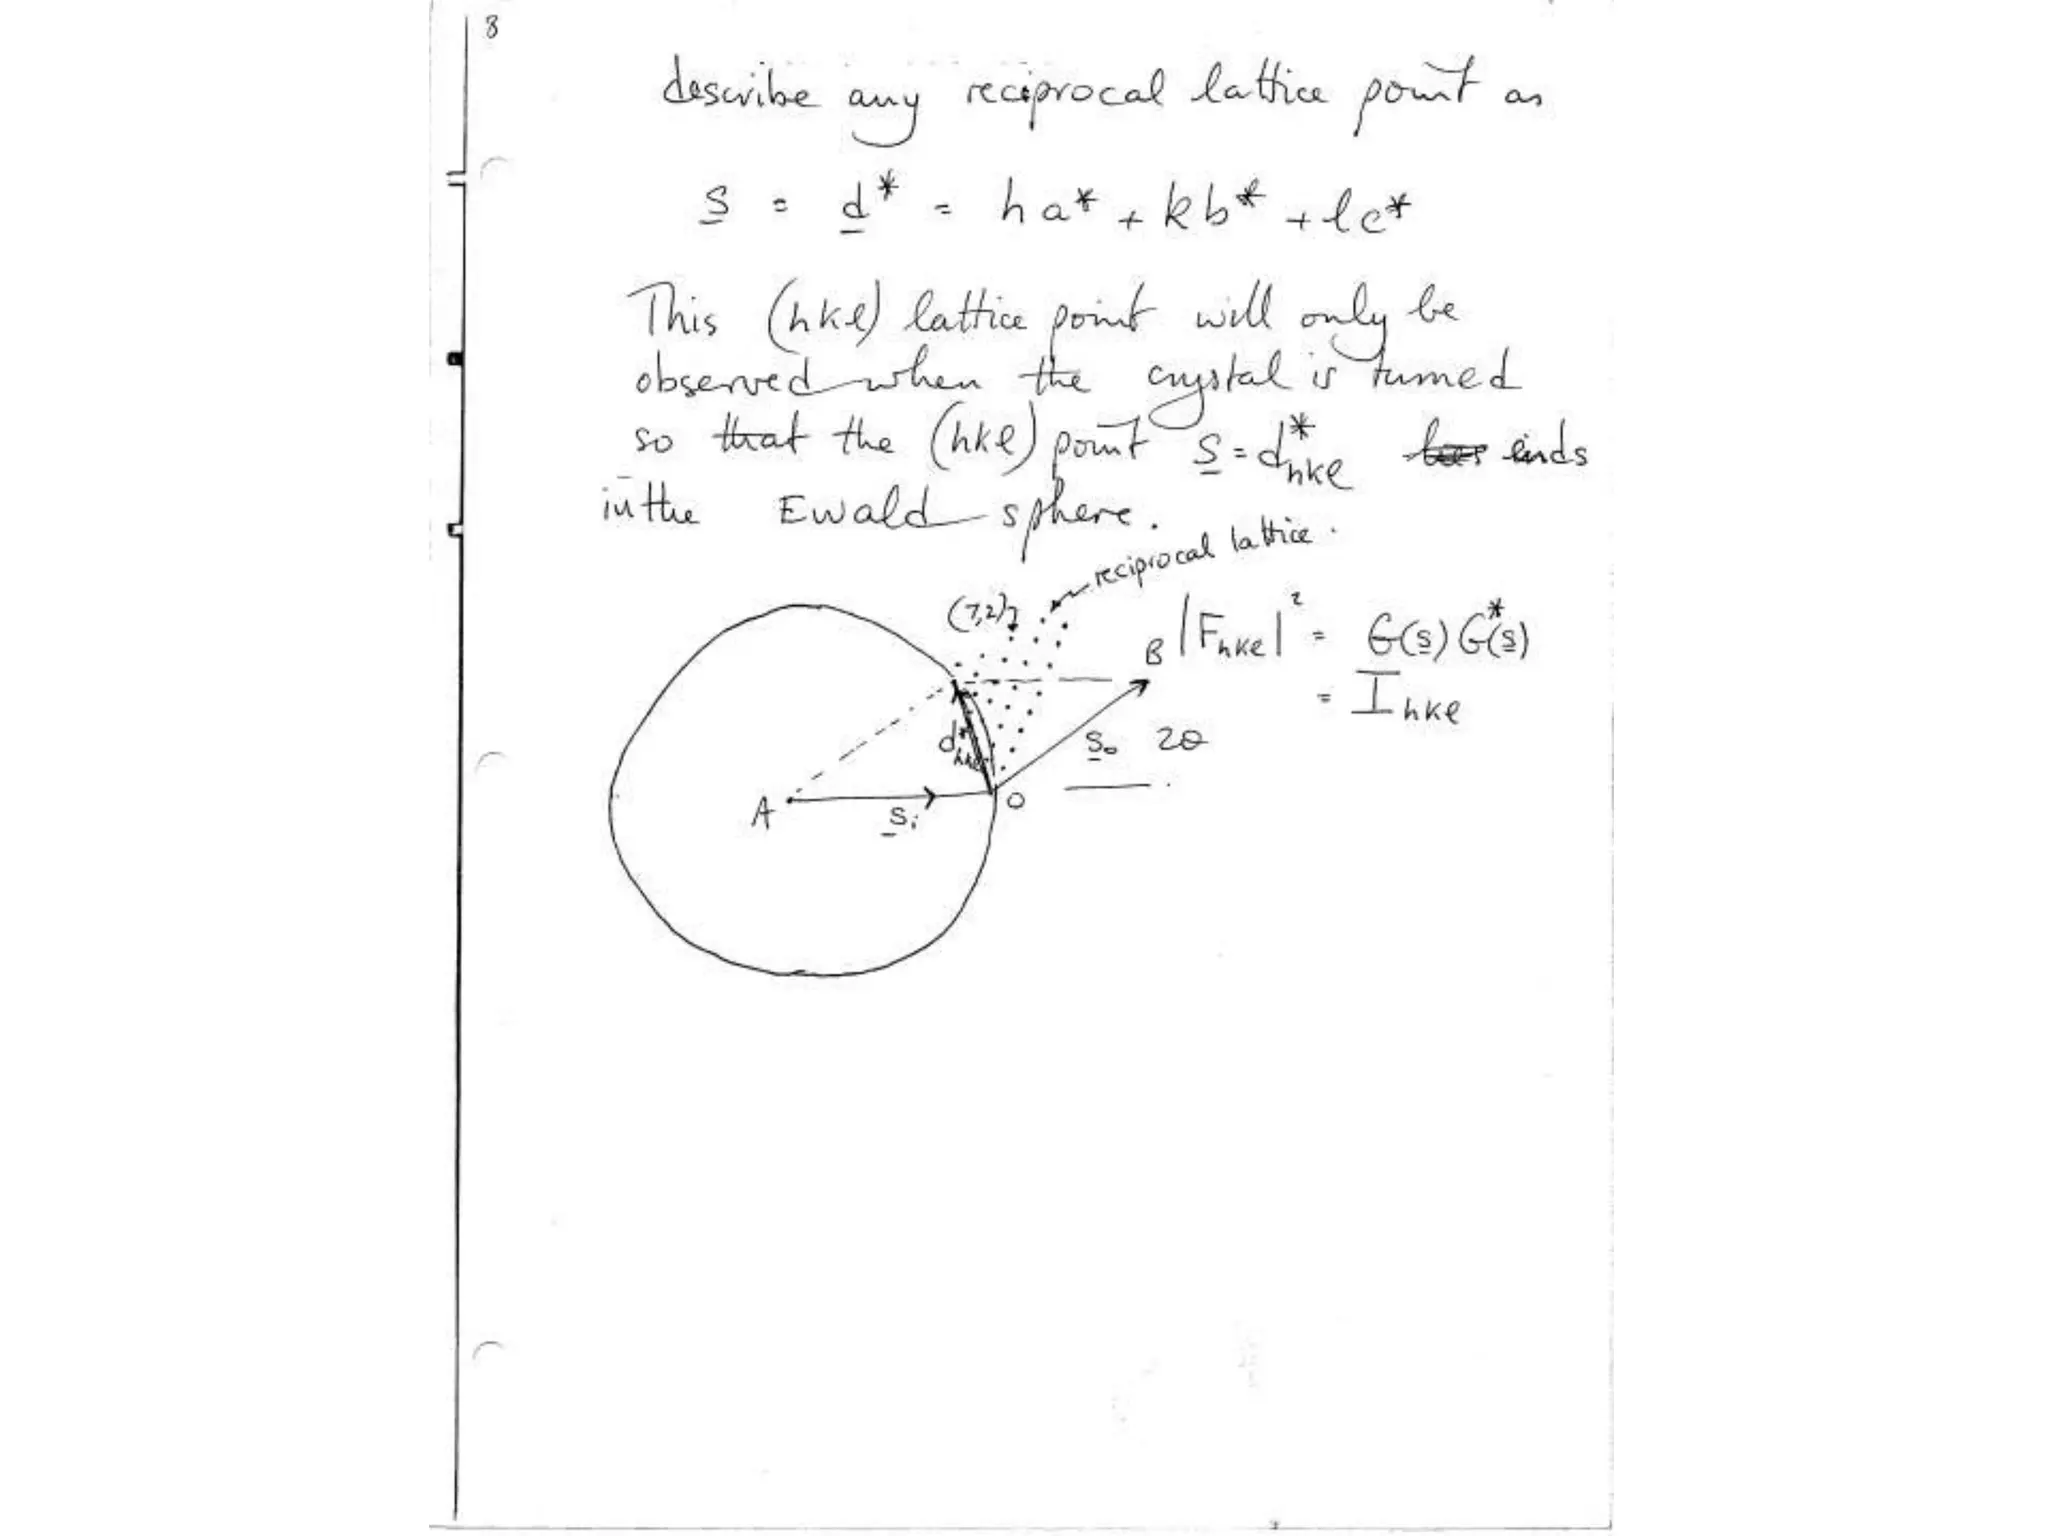 8
describe any reciprocal lattice point as
s = d* = ha* + kb* + lc*
This (hkl) lattice point will only be
observed when the crystal is turned
so that the (hkl) point s = d*hkl ends
in the Ewald sphere.
reciprocal lattice.
(7,2)
B |Fhkl|² = G(s) G*(s)
= Ihkl
d*hkl
so 2θ
A si O